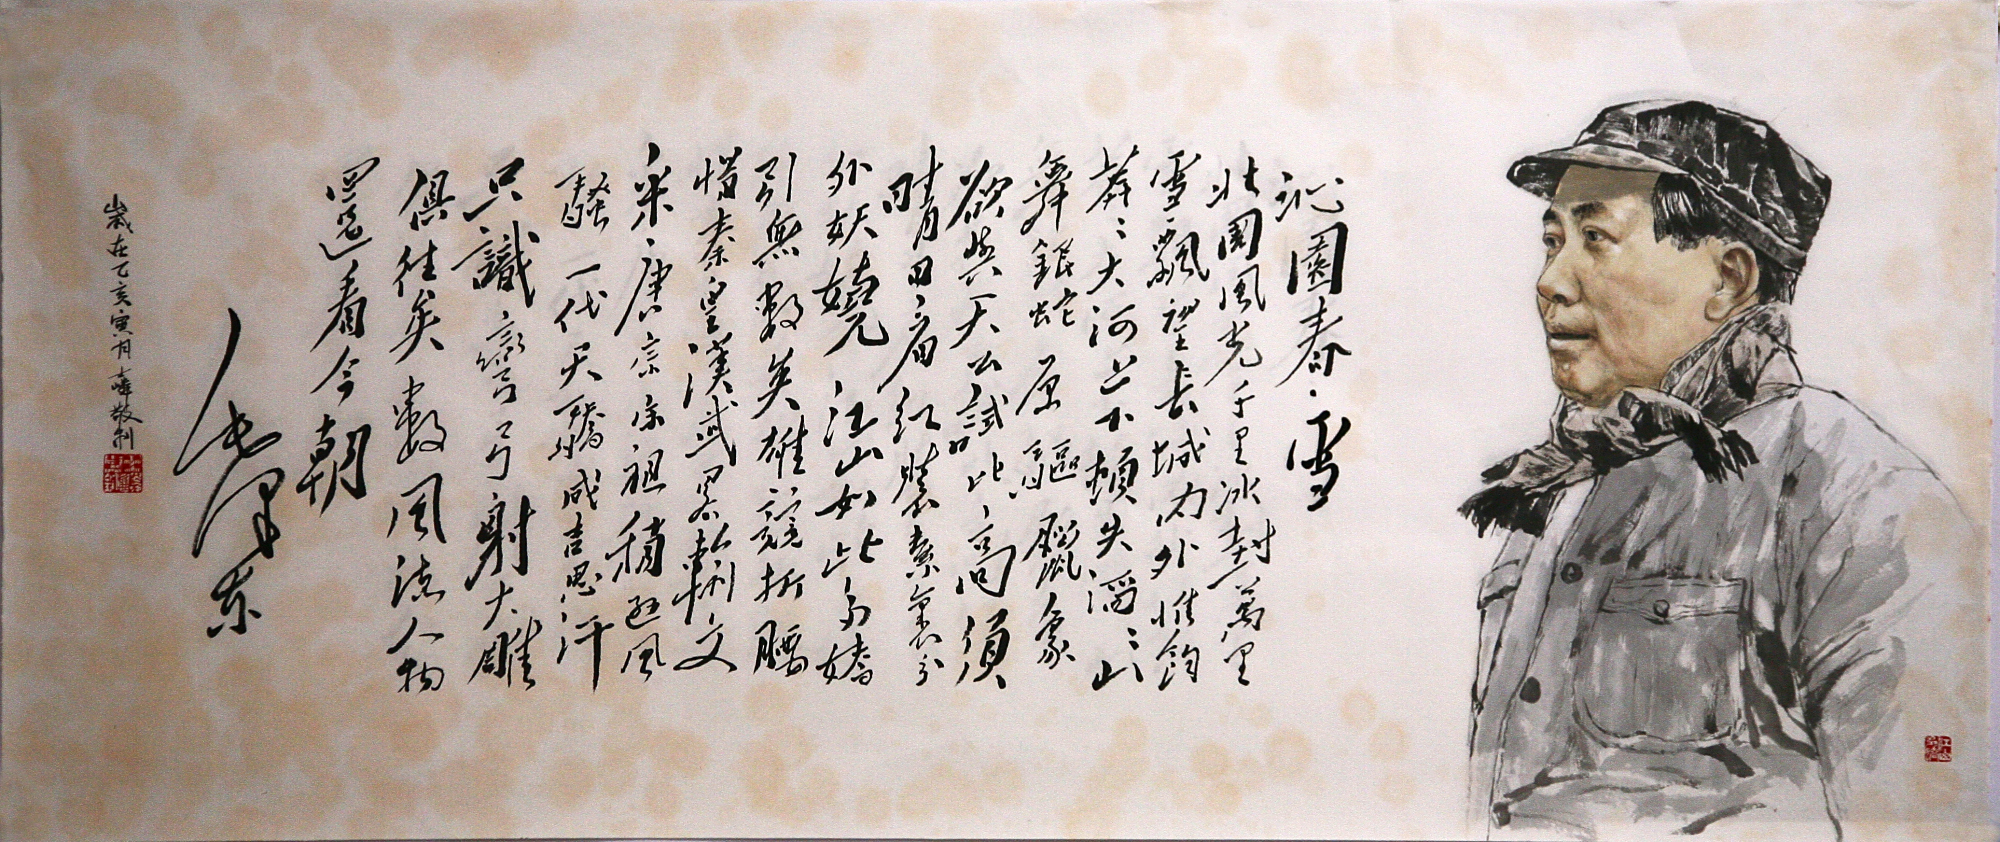 沁園春·雪
北國風光千里冰封萬里
雪飄望長城內外惟餘
莽〻大河上下頓失滔〻山
舞銀蛇原驅臘象
欲與天公試比高須
晴日看紅裝素裹分
外妖嬈江山如此多嬌
引無數英雄競折腰
惜秦皇漢武略輸文
采唐宗宋祖稍遜風
騷一代天驕成吉思汗
只識彎弓射大雕
俱往矣數風流人物
還看今朝
毛澤東
歲在乙亥寅月敬制